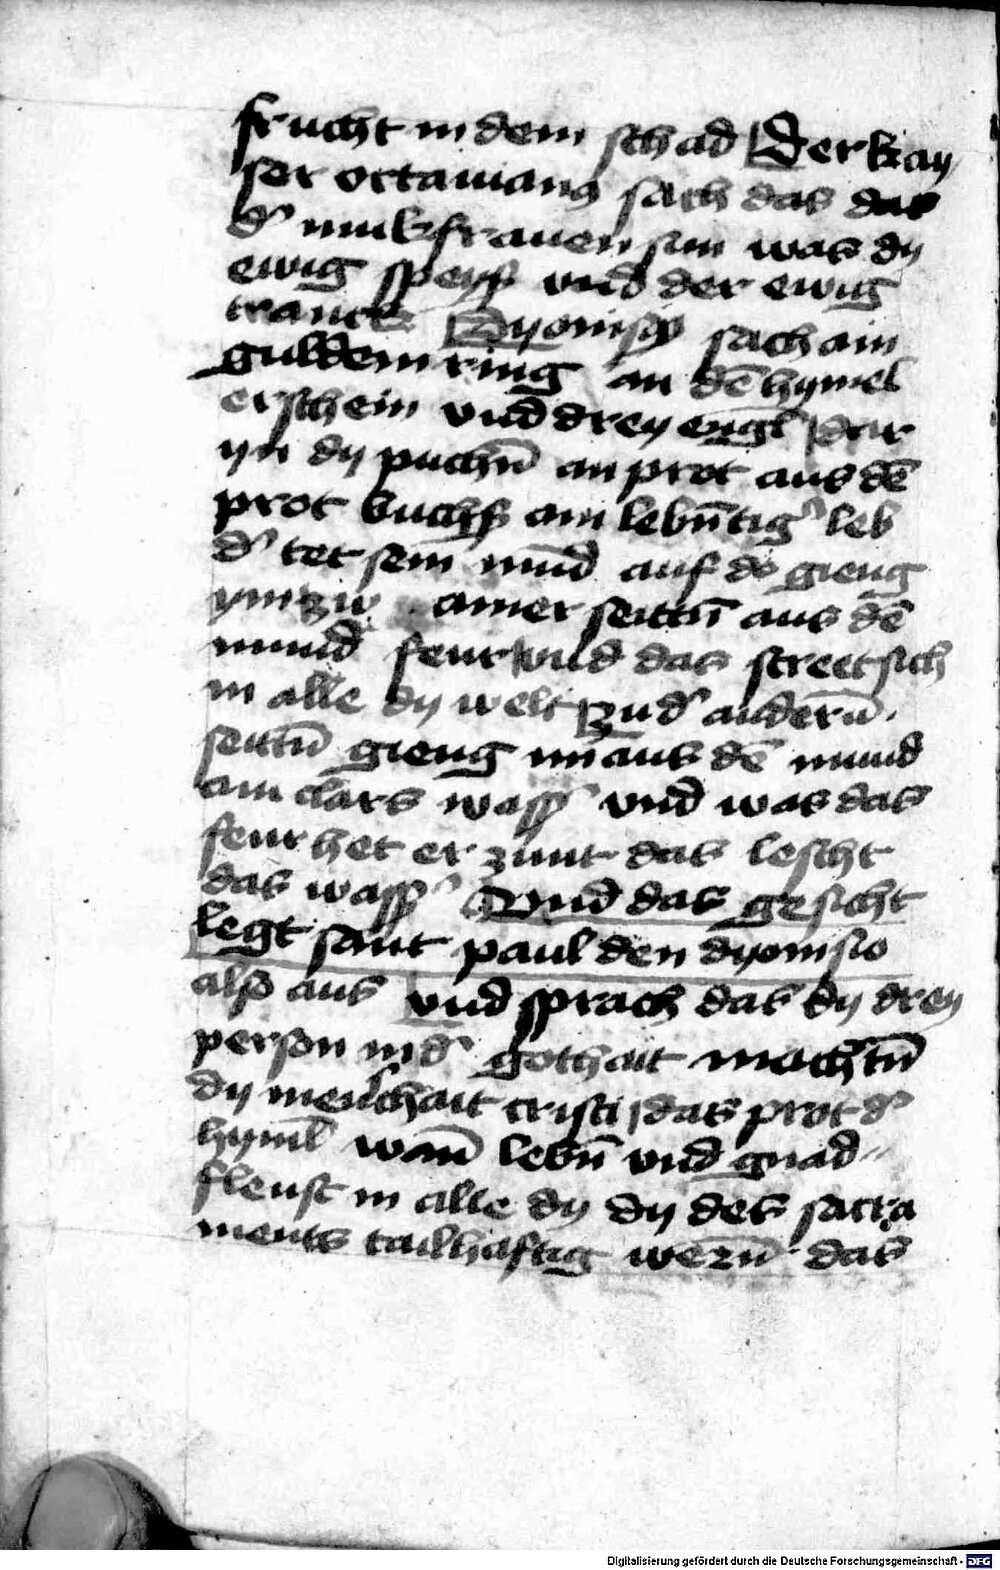 frucht in dem schad Der kay
ser octauianus sach das das
d' iunkfrauen sun was dy
ewig speys vnd der ewig
tranck Dyonisius sach ain
guldem ring an dē hymel
erschein vnd drey engl dar
yn dy puchn̄ ain prot aus dē
prot buchs ain lebn̄tig' leb
d' tet sein mūd auf do gieng
ym zw ainer seittn̄ aus dē
mund feur vnd das street sich
in alle dy welt zu d' andern̄
seittn̄ gieng im aus dē mund
ain clars wass' vnd was das
feur het er zunt das lescht
das wass' Vnd das gesicht
legt sant paul den dyonisio
also aus vnd sprach das dy drey
person in d' gothait machtn̄
dy menschait cristi das prot d'
hyml wān lebn̄ vnd gnad
fleust in alle dy dy des sacra
ments tailhaftig wern̄ das
Digitalisierung gefördert durch die Deutsche Forschungsgemeinschaft - DFG